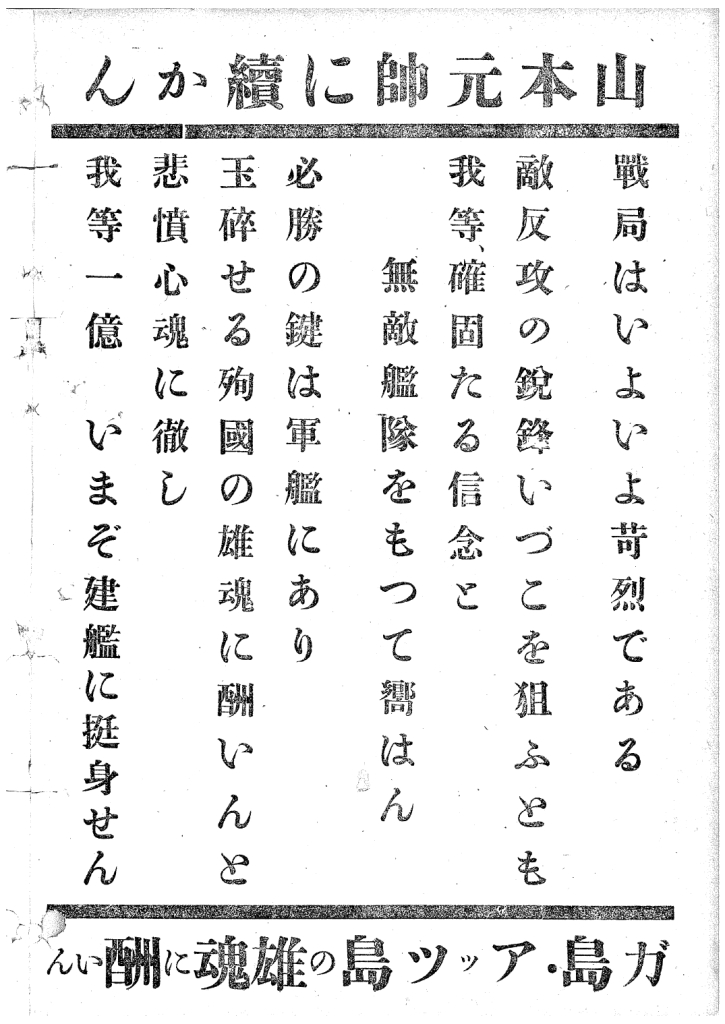 山本元帥に續かん
戰局はいよいよ苛烈である
敵反攻の銳鋒いづこを狙ふとも
我等、確固たる信念と
無敵艦隊をもつて嚮はん
必勝の鍵は軍艦にあり
玉碎せる殉國の雄魂に酬いんと
悲憤心魂に徹し
我等一億 いまぞ建艦に挺身せん
ガ島・アッツ島の雄魂に酬いん